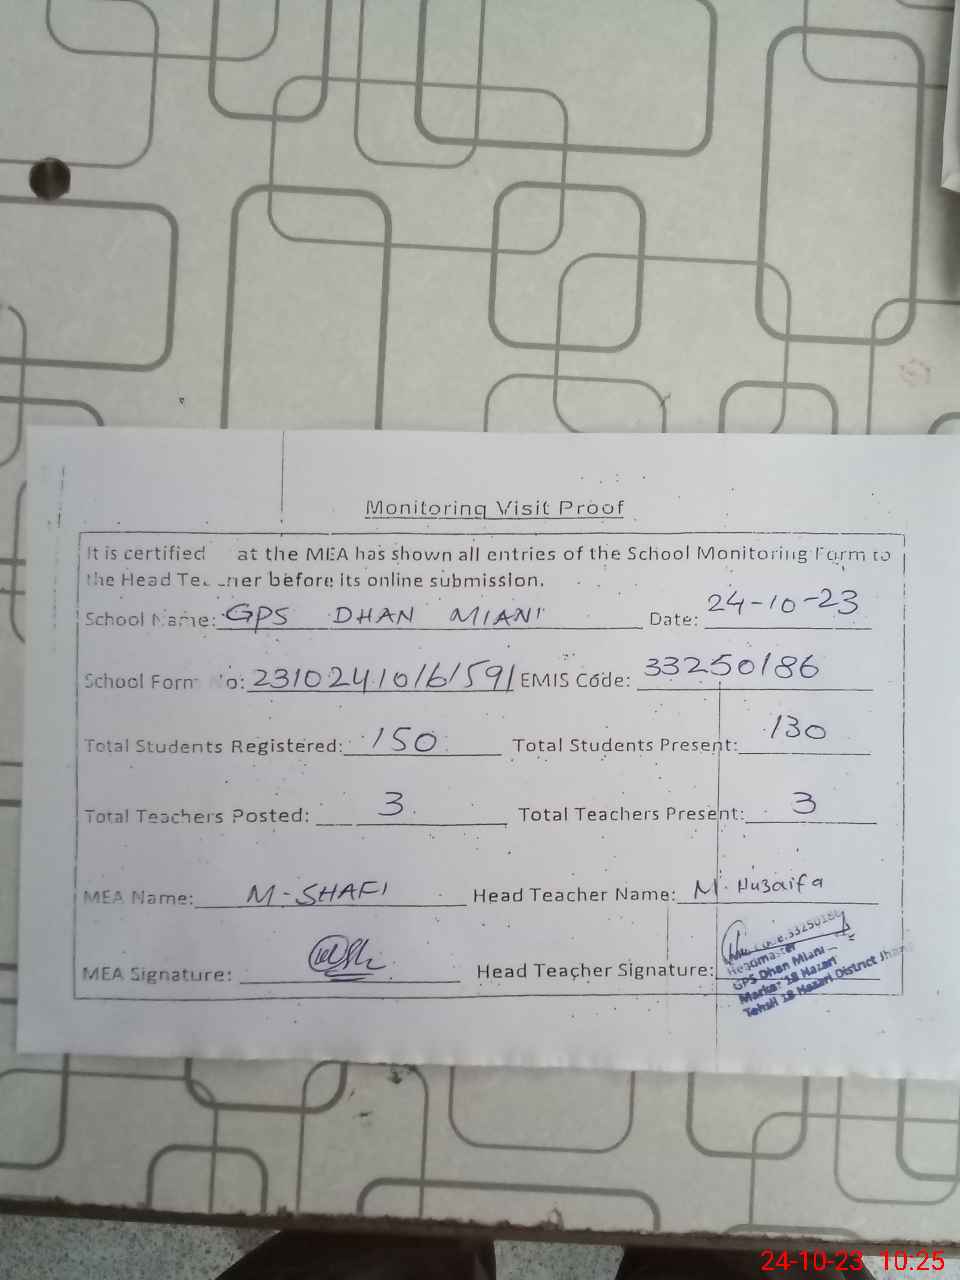 Monitoring Visit Proof
It is certified at the MEA has shown all entries of the School Monitoring Form to
the Head before its online submission.
School Name: GPS DHAN MIANI Date: 24-10-23
School Form No: 23102410161591 EMIS Code: 33250186
Total Students Registered: 150 Total Students Present: 130
Total Teachers Posted: 3 Total Teachers Present: 3
MEA Name: M-SHAFI Head Teacher Name: M. Huzaifa
MEA Signature: Head Teacher Signature:
33250186
Headmaster
GPS Dhan Miani
Markaz 18 Hazari
Tehsil 18 Hazari District
24-10-23 10:25